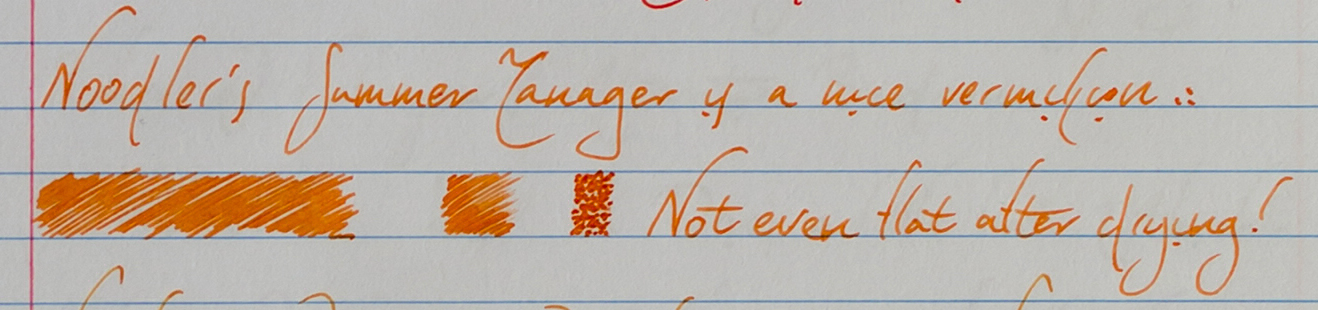 Noodler's Summer Tanager is a nice vermilion..
Not even flat after drying!